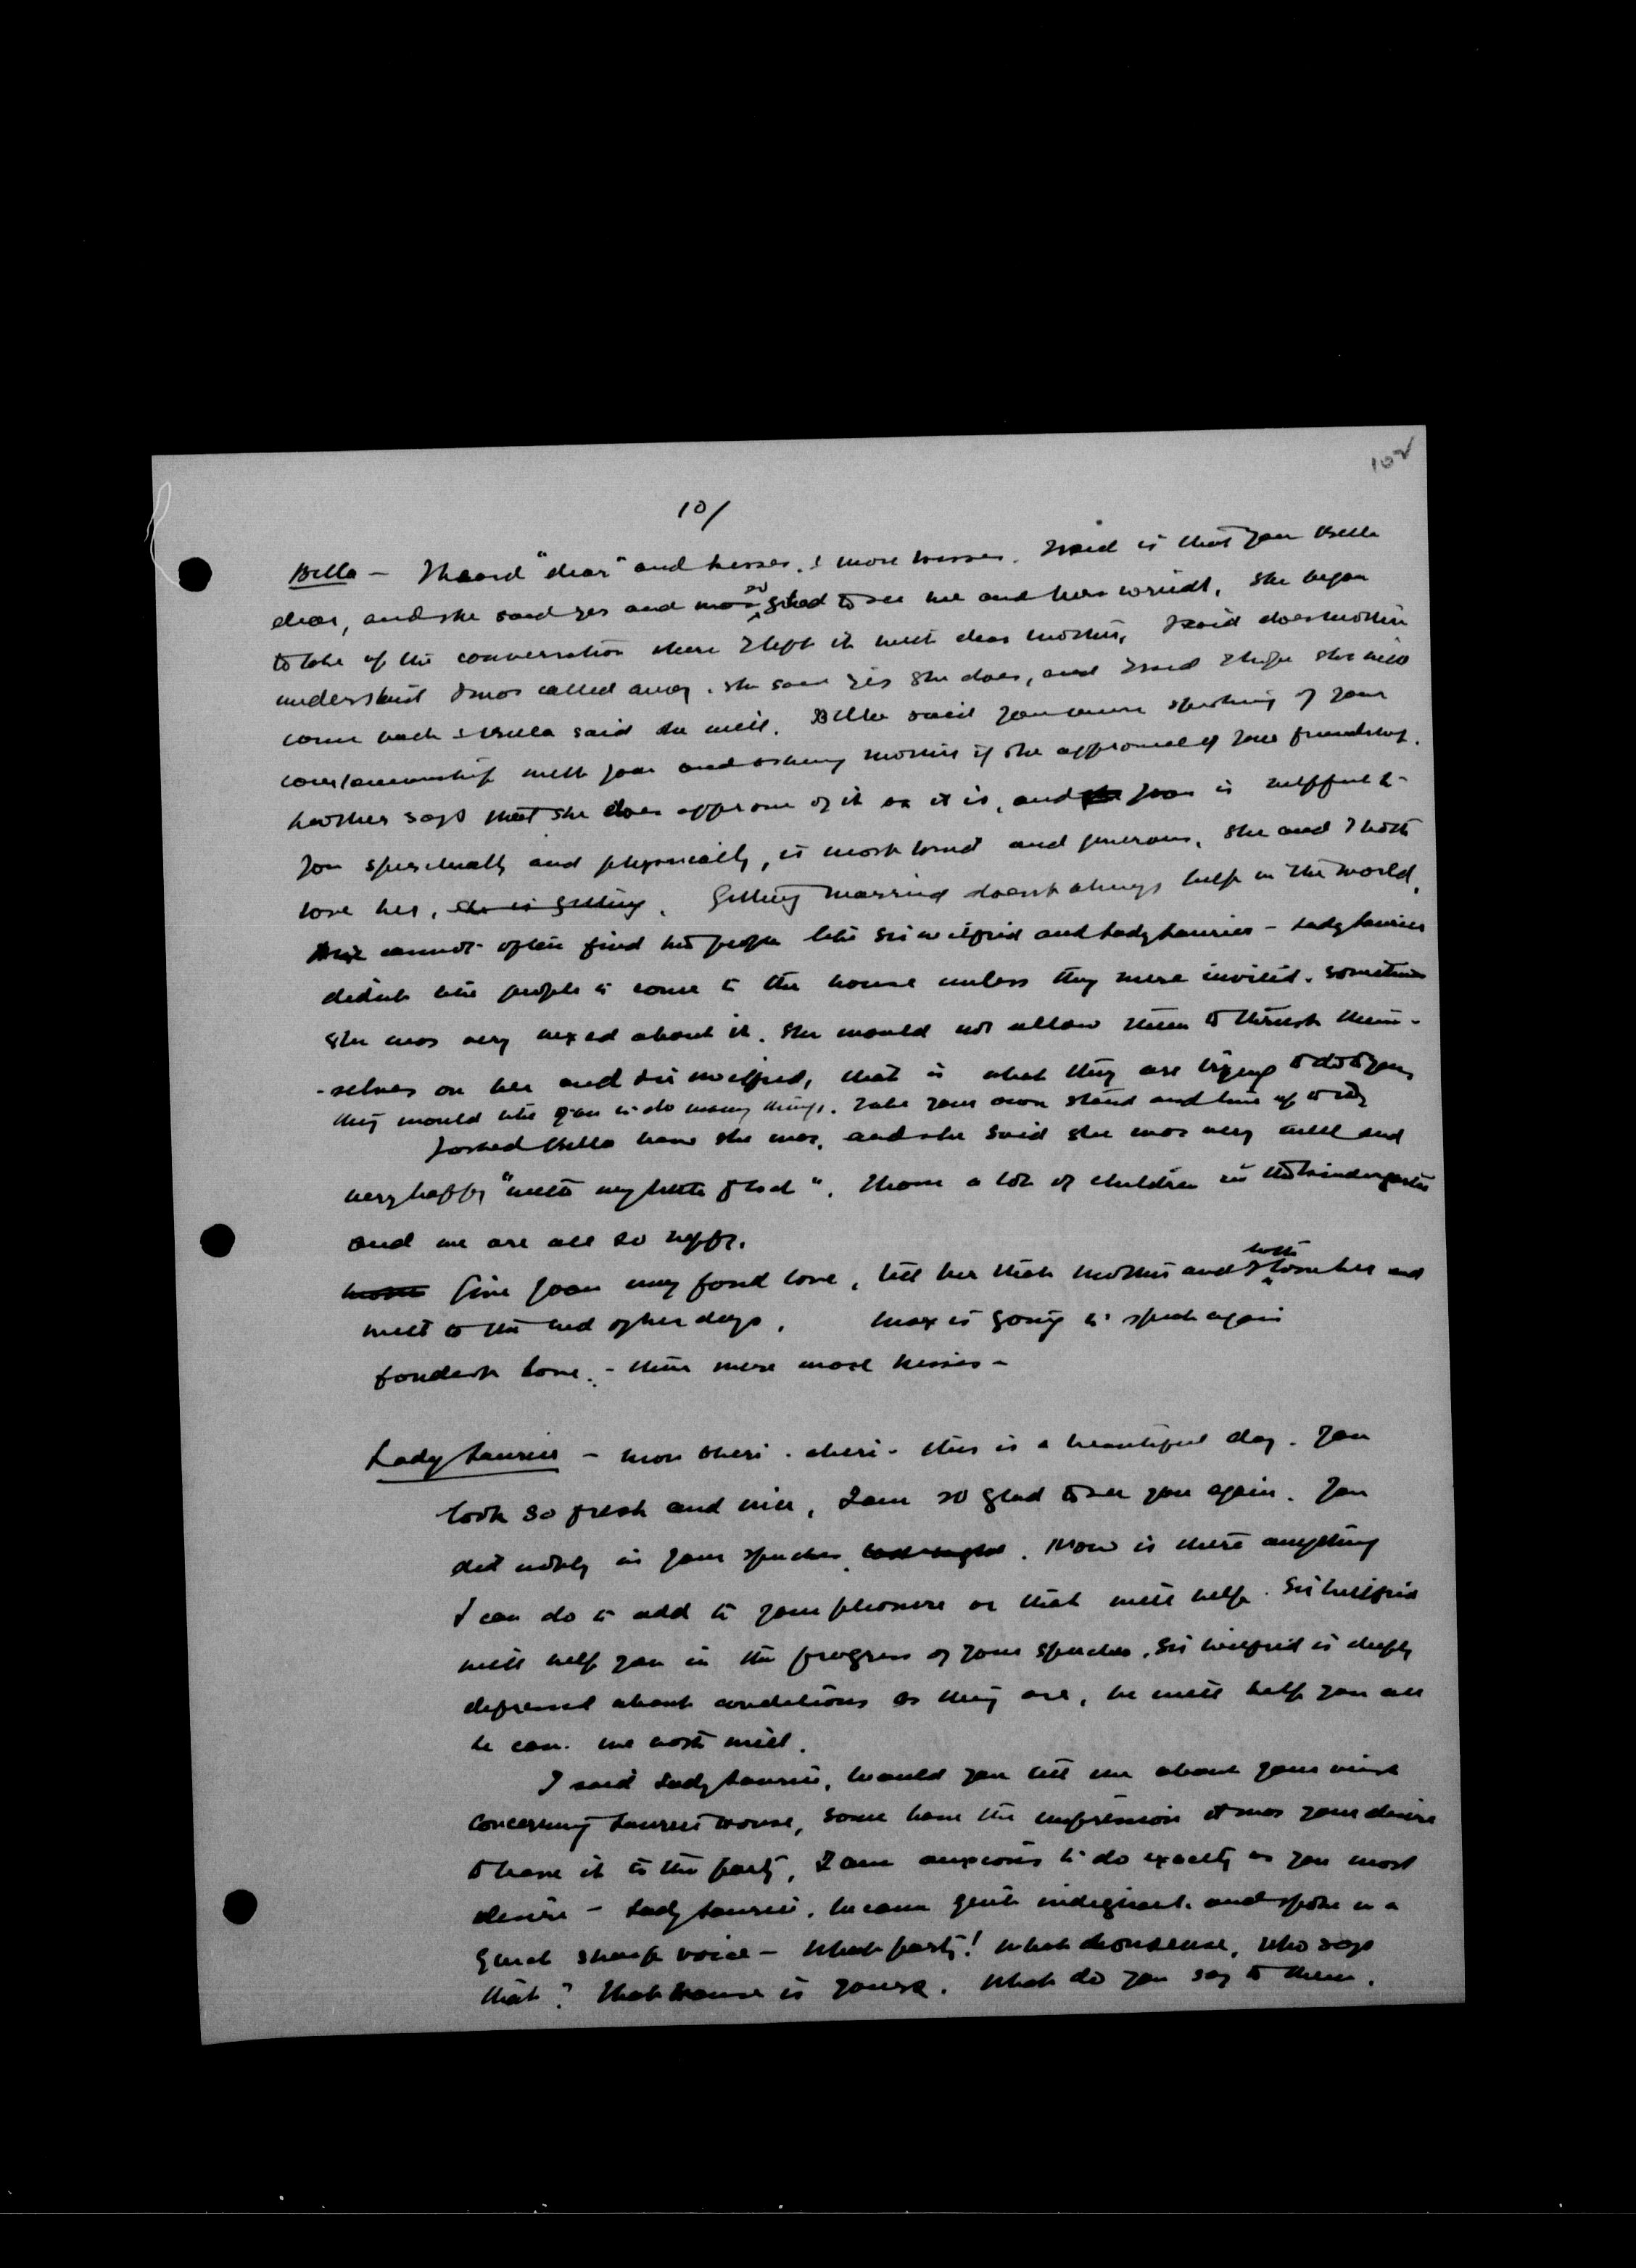 102
10/
Bella - I heard "dear" and kisses. & more kisses. I said is that you Bella
dear, and she said yes and was so glad to see me and her wrists, she began
to take up the conversation where I left it with dear mother, I said does mother
understand I was called away. she said yes she does, and I said I hope she will
come back & Bella said she will. Bella said you were speaking of your
companionship with Joan and asking mother if she approved of your friendship.
Mother says that she does approve of it as it is, and Joan is helpful to
you spiritually and physically, is most kind and generous, she and I both
love her, she is getting. Getting married doesn't always help in the world,
cannot often find two people like Sir Wilfrid and Lady Laurier - Lady Laurier
didn't like people to come to the house unless they were invited. Sometimes
she was very vexed about it. She would not allow them to thrust them-
-selves on her and Sir Wilfrid, that is what they are trying to do to you,
they would like you to do many things. Take your own stand and live up to it
I asked Bella how she was, and she said she was very well and
very happy "with my little flock". I have a lot of children in the kindergarten
and we are all so happy.
Give Joan my fond love, tell her that mother and I both love her and
will to the end of her days. Max is going to speak again
fondest love. - there were more kisses -
Lady Laurier - mon cheri - cheri - this is a beautiful day. You
look so fresh and nice, I am so glad to see you again. You
did nobly in your speeches last night. Now is there anything
I can do to add to your pleasure or that will help. Sir Wilfrid
will help you in the progress of your speeches. Sir Wilfrid is deeply
depressed about conditions as they are, he will help you all
he can. we both will.
I said Lady Laurier, would you tell me about your wish
concerning Laurier House, some have the impression it was your desire
to leave it to the party, I am anxious to do exactly as you most
desire - Lady Laurier, became quite indignant. and spoke in a
quick sharp voice - What party! what nonsense, who says
that? That house is yours. What do you say to them.